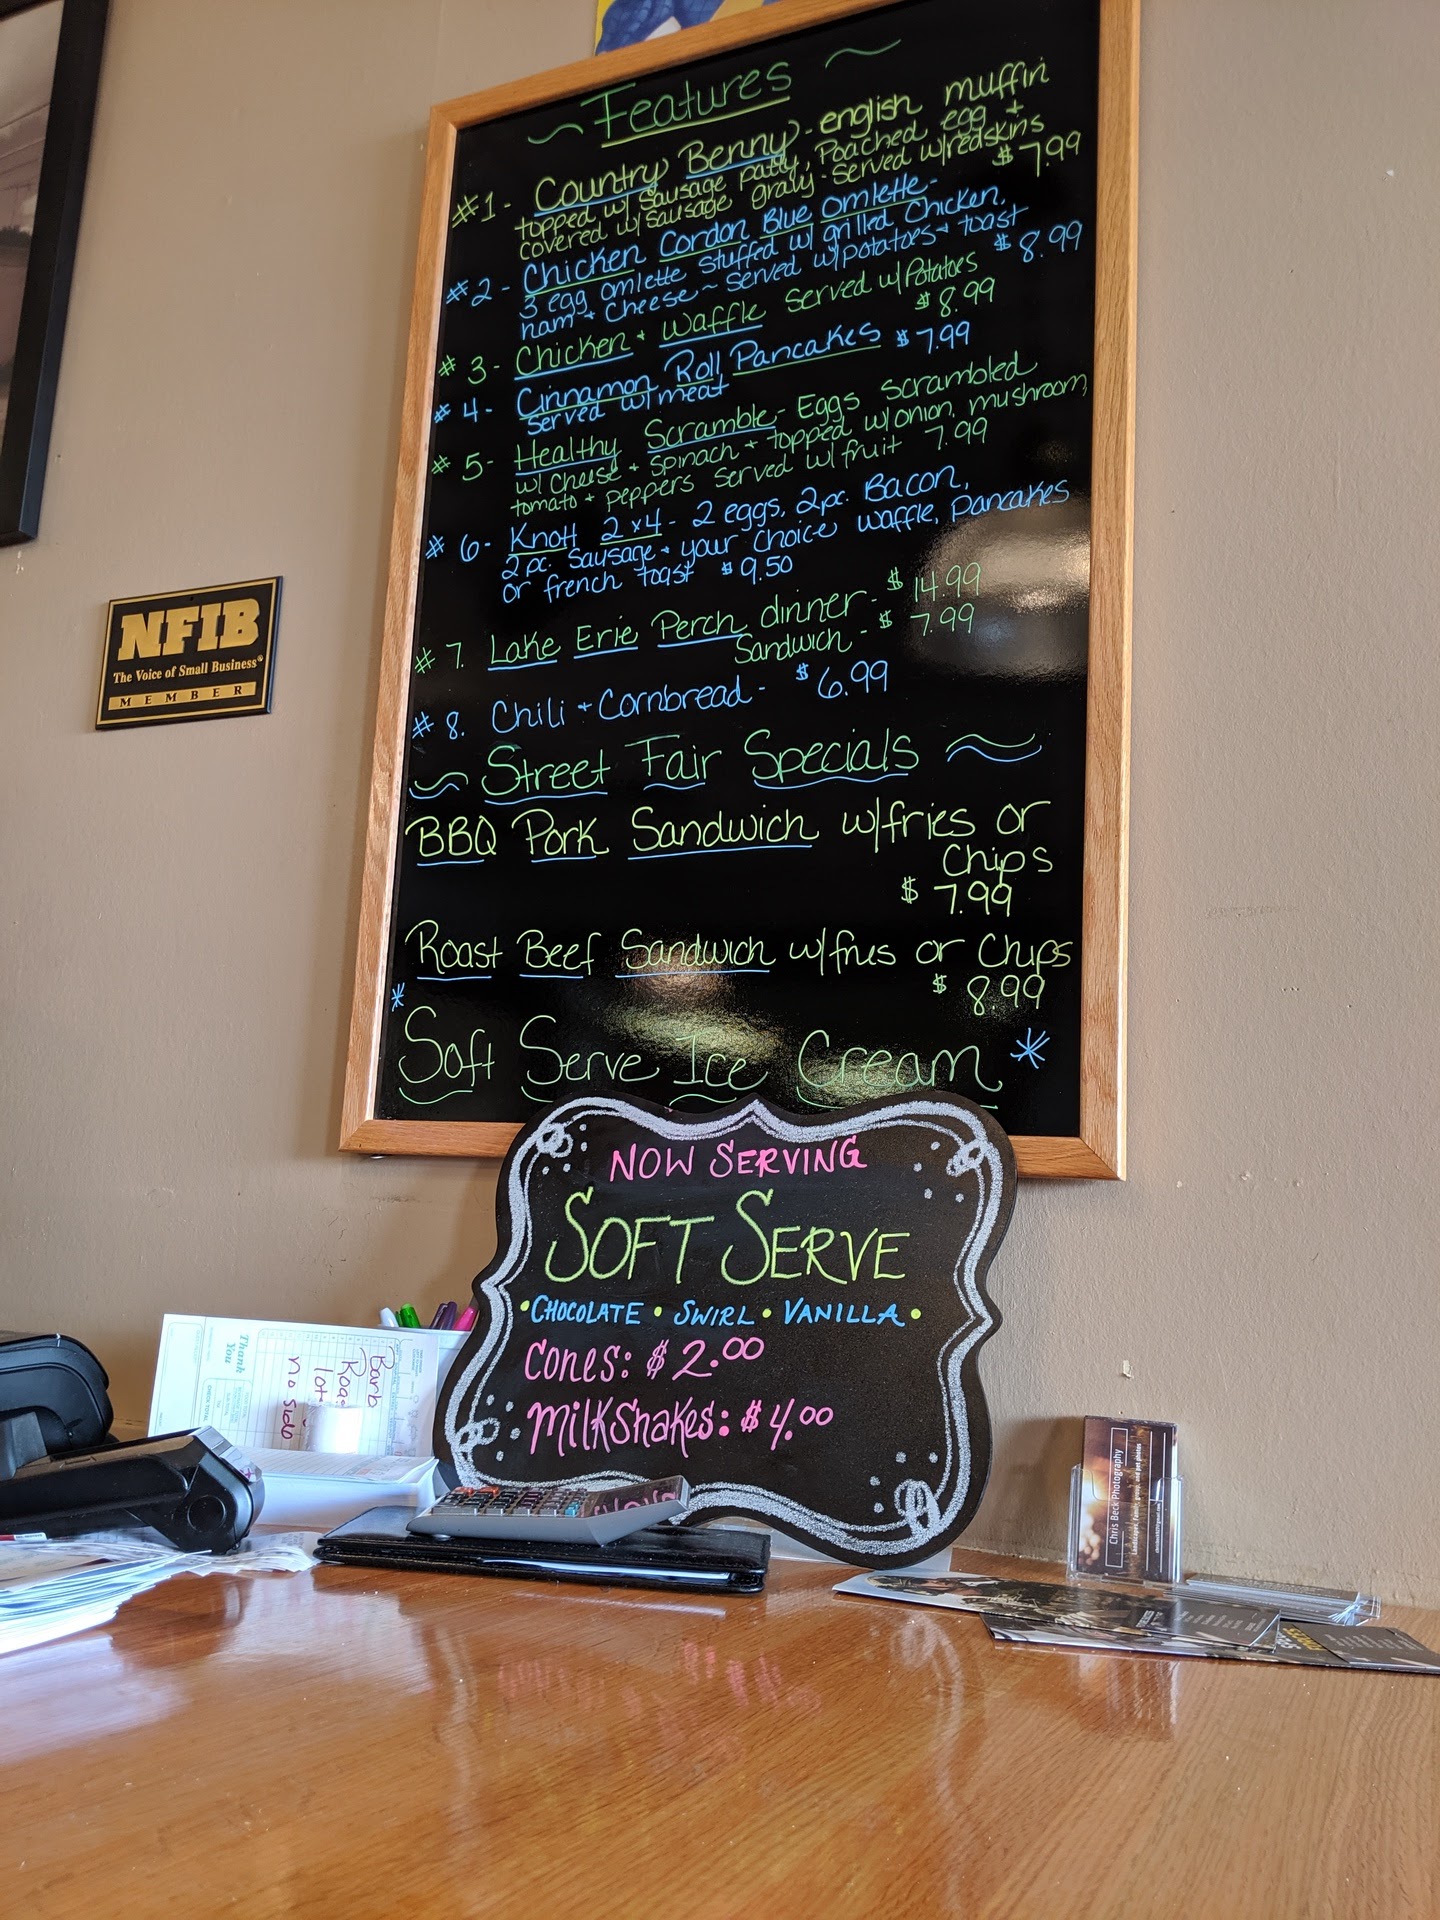 Features
#1- Country Benny - english muffin
topped w/ Sausage patty, Poached egg +
covered w/ sausage gravy - served w/ redskins
$ 7.99
#2- Chicken Cordon Blue Omlette-
3 egg omlette stuffed w/ grilled Chicken,
ham + Cheese ~ served w/ potatoes + toast
$ 8.99
#3- Chicken + Waffle served w/ Potatoes
$ 8.99
#4- Cinnamon Roll Pancakes $ 7.99
served w/ meat
#5- Healthy Scramble- Eggs scrambled
w/ cheese + spinach + topped w/ onion, mushroom,
tomato + peppers served w/ fruit 7.99
#6- Knott 2x4 - 2 eggs, 2pc. Bacon,
2 pc. Sausage + your choice waffle, pancakes
or french toast $ 9.50
#7. Lake Erie Perch dinner - $ 14.99
Sandwich - $ 7.99
#8. Chili + Cornbread - $ 6.99
Street Fair Specials
BBQ Pork Sandwich w/fries or
Chips
$ 7.99
Roast Beef Sandwich w/fries or Chips
$ 8.99
* Soft Serve Ice Cream *
NFIB
The Voice of Small Business®
MEMBER
NOW SERVING
SOFT SERVE
• CHOCOLATE • SWIRL • VANILLA •
CONES: $ 2.00
MILKSHAKES: $ 4.00
Thank
You
Barb
no side
Chris Beck Photography